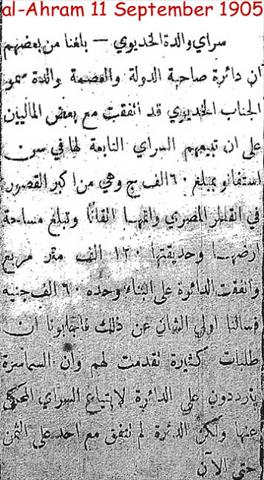 al-Ahram 11 September 1905
سراي والدة الخديوي — بلغنا من بعضهم
ان دائرة صاحبة الدولة والعصمة والدة سمو
الجناب الخديوي قد اتفقت مع بعض الماليين
على ان تبيعهم السراي التابعة لها في سان
استفانو بمبلغ ٦٠ الف ج وهي من اكبر القصور
في القطر المصري واتقانًا وتبلغ مساحة
ارضها وحديقتها ١٢٠ الف متر مربع
وانفقت الدائرة على البناء وحده ٦٠ الف جنيه
فسألنا اولي الشان عن ذلك فاجابونا ان
طلبات كثيرة تقدمت لهم وان السماسرة
يترددون على الدائرة لابتياع السراي المحكي
عنها ولكن الدائرة لم تتفق مع احد على الثمن
حتى الآن